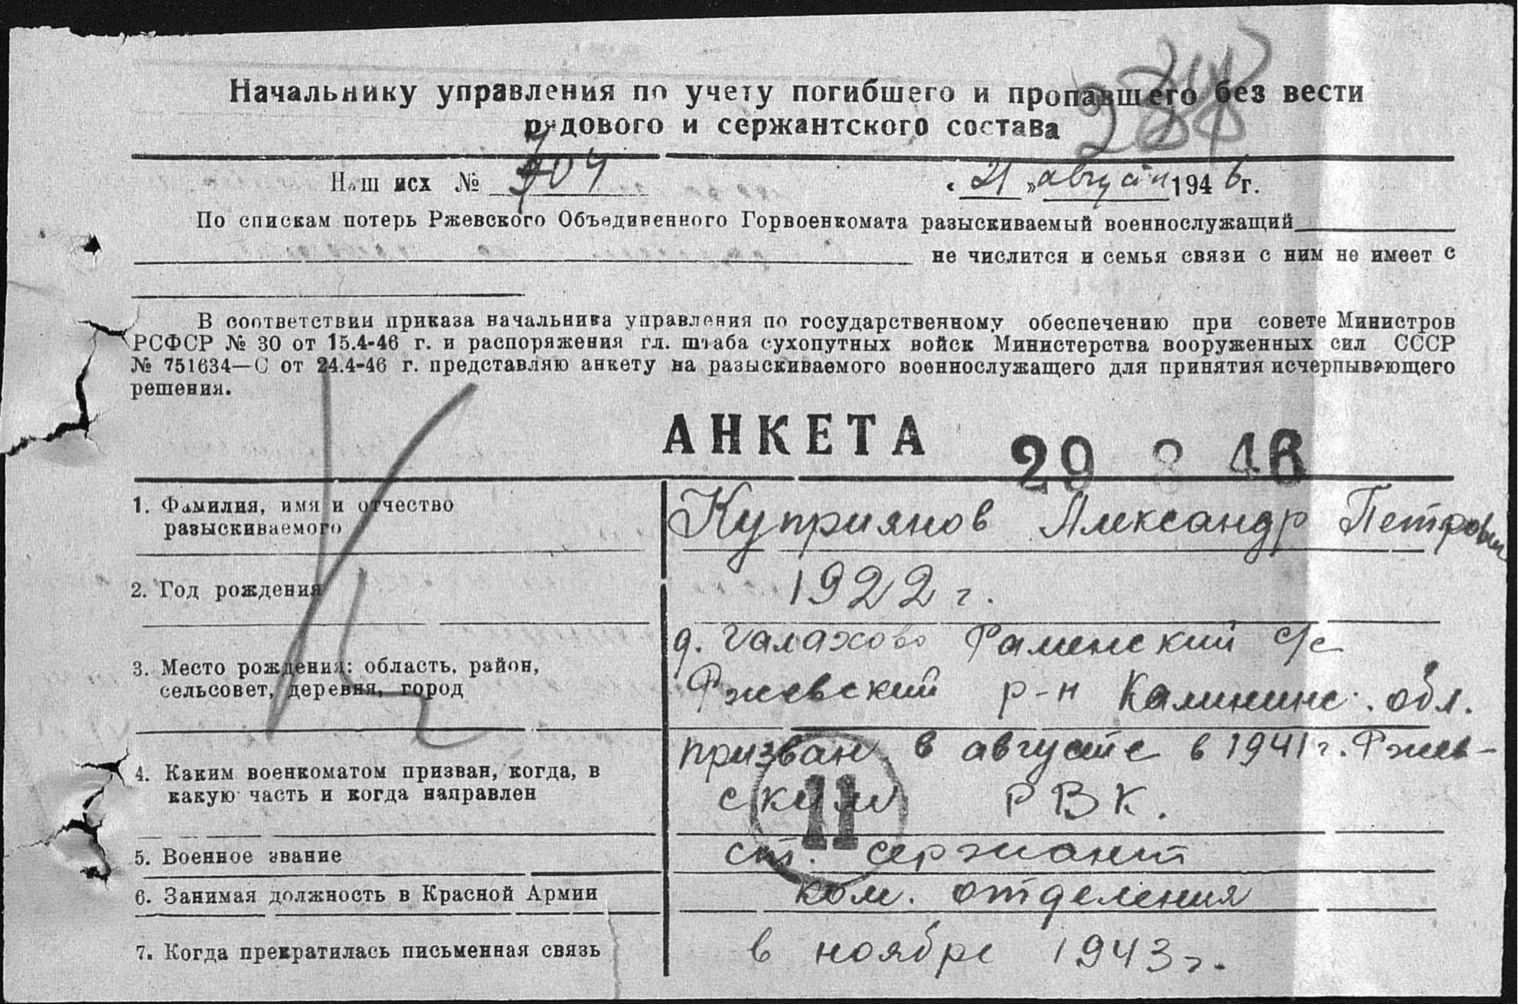 288
Начальнику управления по учету погибшего и пропавшего без вести
рядового и сержантского состава
Наш исх № 704 « 21 » августа 1946 г.
По спискам потерь Ржевского Объединенного Горвоенкомата разыскиваемый военнослужащий
не числится и семья связи с ним не имеет с
В соответствии приказа начальника управления по государственному обеспечению при совете Министров
РСФСР № 30 от 15.4-46 г. и распоряжения гл. штаба сухопутных войск Министерства вооруженных сил СССР
№ 751634—С от 24.4-46 г. представляю анкету на разыскиваемого военнослужащего для принятия исчерпывающего
решения.
АНКЕТА
29 8 46
1. Фамилия, имя и отчество
разыскиваемого
Куприянов Александр Петрович
2. Год рождения
1922 г.
3. Место рождения: область, район,
сельсовет, деревня, город
д. Галахово Раменский с/с
Ржевский р-н Калининс. обл.
4. Каким военкоматом призван, когда, в
какую часть и когда направлен
призван в августе в 1941 г. Ржев-
ским РВК.
11
5. Военное звание
ст. сержант
6. Занимая должность в Красной Армии
ком. отделения
7. Когда прекратилась письменная связь
в ноябре 1943 г.